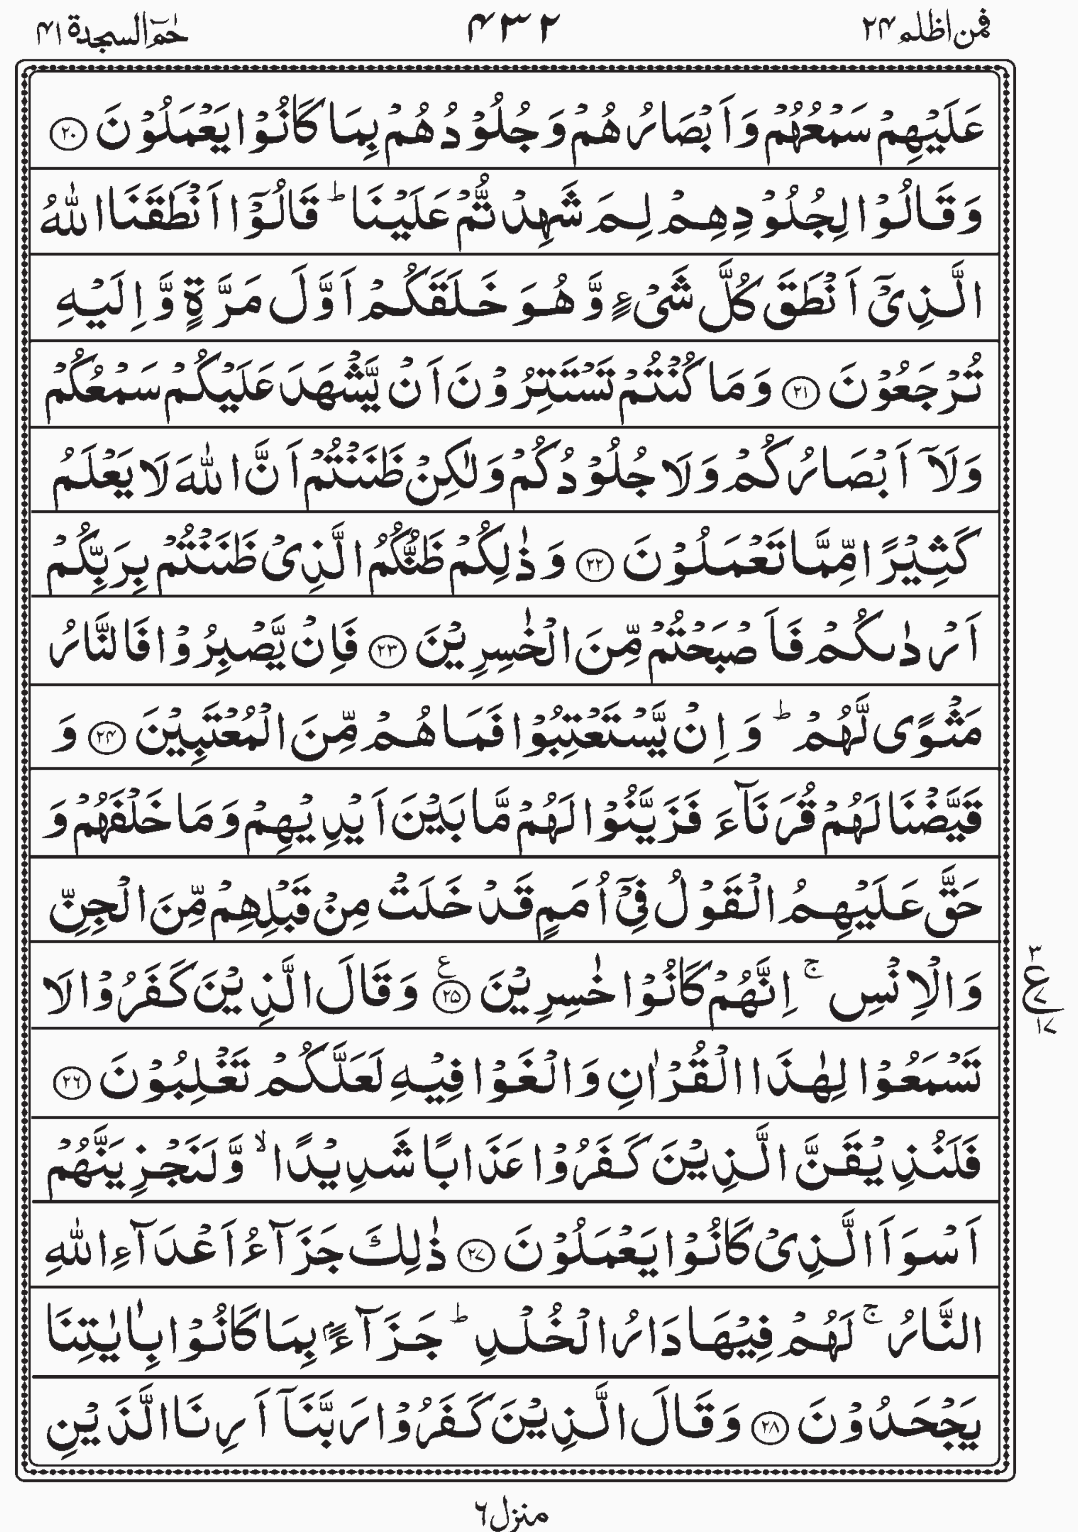 فمن اظلم ۲۴
۴۳۲
حٰمٓ السجدة ۴۱
عَلَيْهِمْ سَمْعُهُمْ وَاَبْصَارُهُمْ وَجُلُوْدُهُمْ بِمَا كَانُوْا يَعْمَلُوْنَ ﴿۲۰﴾
وَقَالُوْا لِجُلُوْدِهِمْ لِمَ شَهِدْتُّمْ عَلَيْنَا ؕ قَالُوْۤا اَنْطَقَنَا اللّٰهُ
الَّذِىْۤ اَنْطَقَ كُلَّ شَىْءٍ وَّهُوَ خَلَقَكُمْ اَوَّلَ مَرَّةٍ وَّاِلَيْهِ
تُرْجَعُوْنَ ﴿۲۱﴾ وَمَا كُنْتُمْ تَسْتَتِرُوْنَ اَنْ يَّشْهَدَ عَلَيْكُمْ سَمْعُكُمْ
وَلَاۤ اَبْصَارُكُمْ وَلَا جُلُوْدُكُمْ وَلٰكِنْ ظَنَنْتُمْ اَنَّ اللّٰهَ لَا يَعْلَمُ
كَثِيْرًا مِّمَّا تَعْمَلُوْنَ ﴿۲۲﴾ وَذٰلِكُمْ ظَنُّكُمُ الَّذِىْ ظَنَنْتُمْ بِرَبِّكُمْ
اَرْدٰٮكُمْ فَاَصْبَحْتُمْ مِّنَ الْخٰسِرِيْنَ ﴿۲۳﴾ فَاِنْ يَّصْبِرُوْا فَالنَّارُ
مَثْوًى لَّهُمْ ؕ وَاِنْ يَّسْتَعْتِبُوْا فَمَا هُمْ مِّنَ الْمُعْتَبِيْنَ ﴿۲۴﴾ وَ
قَيَّضْنَا لَهُمْ قُرَنَآءَ فَزَيَّنُوْا لَهُمْ مَّا بَيْنَ اَيْدِيْهِمْ وَمَا خَلْفَهُمْ وَ
حَقَّ عَلَيْهِمُ الْقَوْلُ فِىْۤ اُمَمٍ قَدْ خَلَتْ مِنْ قَبْلِهِمْ مِّنَ الْجِنِّ
وَالْاِنْسِ ۚ اِنَّهُمْ كَانُوْا خٰسِرِيْنَ ﴿۲۵﴾ ع وَقَالَ الَّذِيْنَ كَفَرُوْا لَا
۳
ع
۷
۱۷
تَسْمَعُوْا لِهٰذَا الْقُرْاٰنِ وَالْغَوْا فِيْهِ لَعَلَّكُمْ تَغْلِبُوْنَ ﴿۲۶﴾
فَلَنُذِيْقَنَّ الَّذِيْنَ كَفَرُوْا عَذَابًا شَدِيْدًا ۙ وَّلَنَجْزِيَنَّهُمْ
اَسْوَاَ الَّذِىْ كَانُوْا يَعْمَلُوْنَ ﴿۲۷﴾ ذٰلِكَ جَزَآءُ اَعْدَآءِ اللّٰهِ
النَّارُ ۚ لَهُمْ فِيْهَا دَارُ الْخُلْدِ ؕ جَزَآءًۢ بِمَا كَانُوْا بِاٰيٰتِنَا
يَجْحَدُوْنَ ﴿۲۸﴾ وَقَالَ الَّذِيْنَ كَفَرُوْا رَبَّنَاۤ اَرِنَا الَّذَيْنِ
منزل ۶